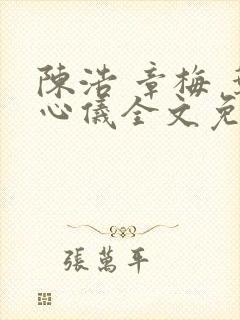 陳浩 章梅
心儀全文免
張萬年